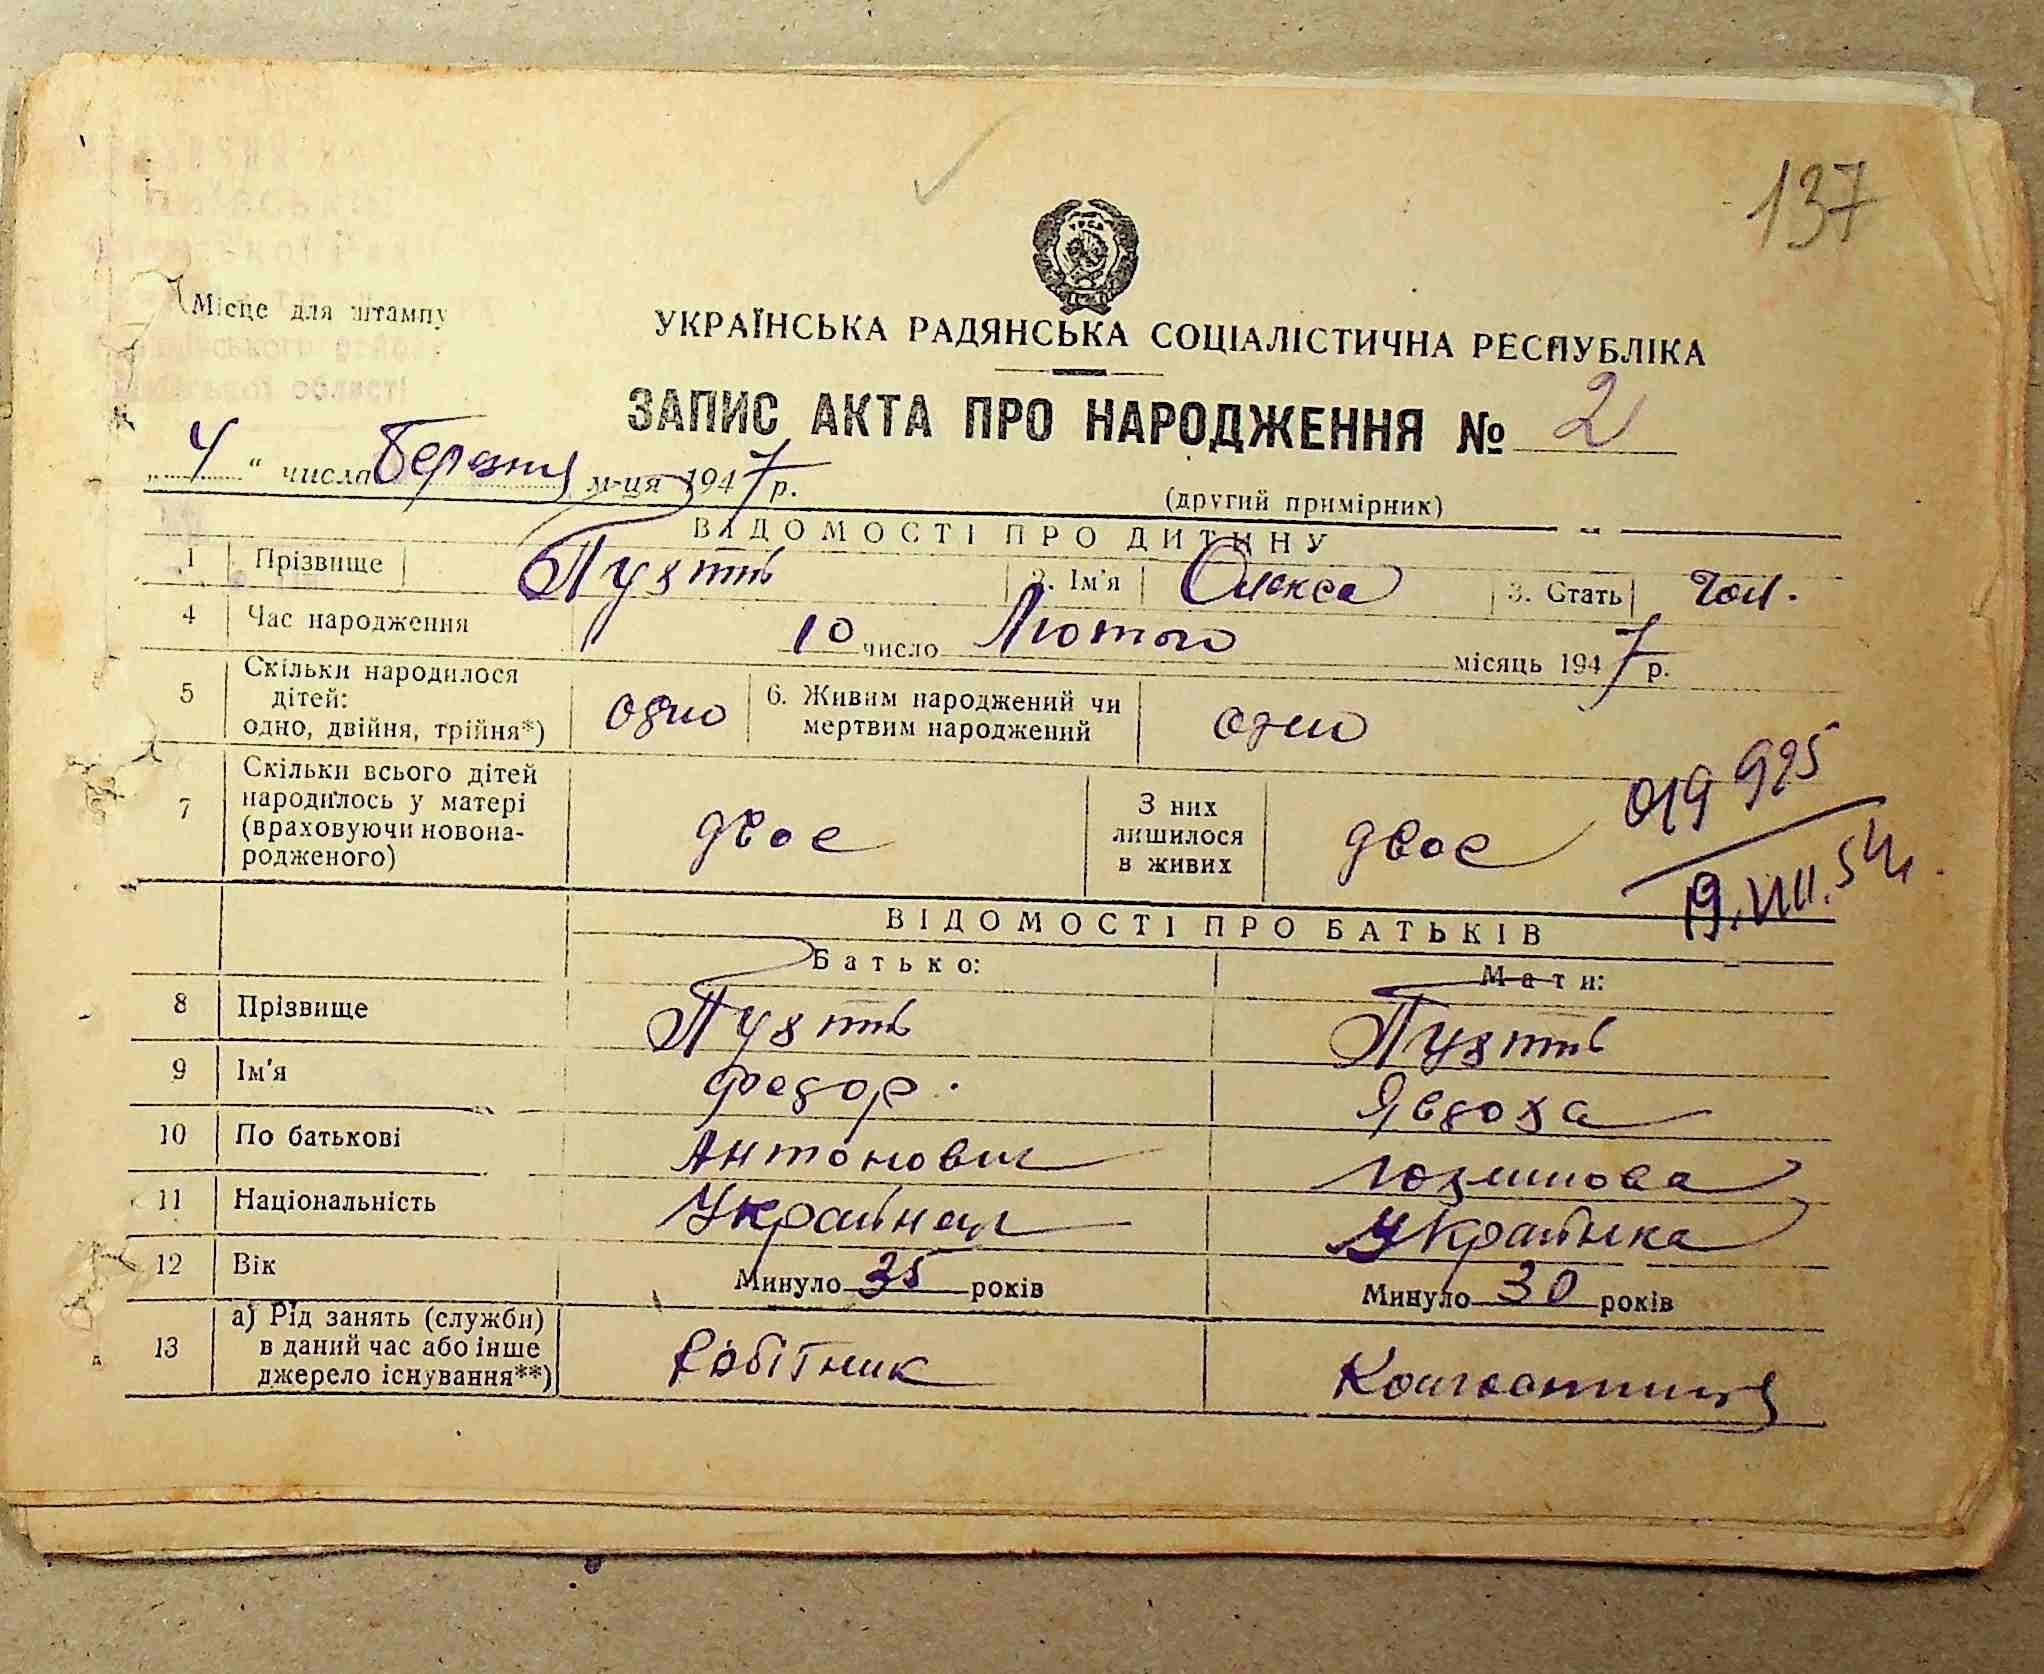 137
Місце для штампу
УКРАЇНСЬКА РАДЯНСЬКА СОЦІАЛІСТИЧНА РЕСПУБЛІКА
області
ЗАПИС АКТА ПРО НАРОДЖЕННЯ № 2
„ 4 “ числа Березня м-ця 1947 р.
(другий примірник)
ВІДОМОСТІ ПРО ДИТИНУ
1 Прізвище Пухть 2. Ім'я Олекса 3. Стать чол.
4 Час народження 10 число Лютого місяць 1947 р.
5 Скільки народилося дітей: одно, двійня, трійня*) одно 6. Живим народжений чи мертвим народжений одно
7 Скільки всього дітей народилось у матері (враховуючи новонародженого) двое З них лишилося в живих двое
019 995
19.VIII.54
ВІДОМОСТІ ПРО БАТЬКІВ
Батько: Мати:
8 Прізвище Пухть Пухть
9 Ім'я Федор. Явдоха
10 По батькові Антонович
11 Національність Украінец Украінка
12 Вік Минуло 35 років Минуло 30 років
13 а) Рід занять (служби) в даний час або інше джерело існування**) Робітник Колгоспниця